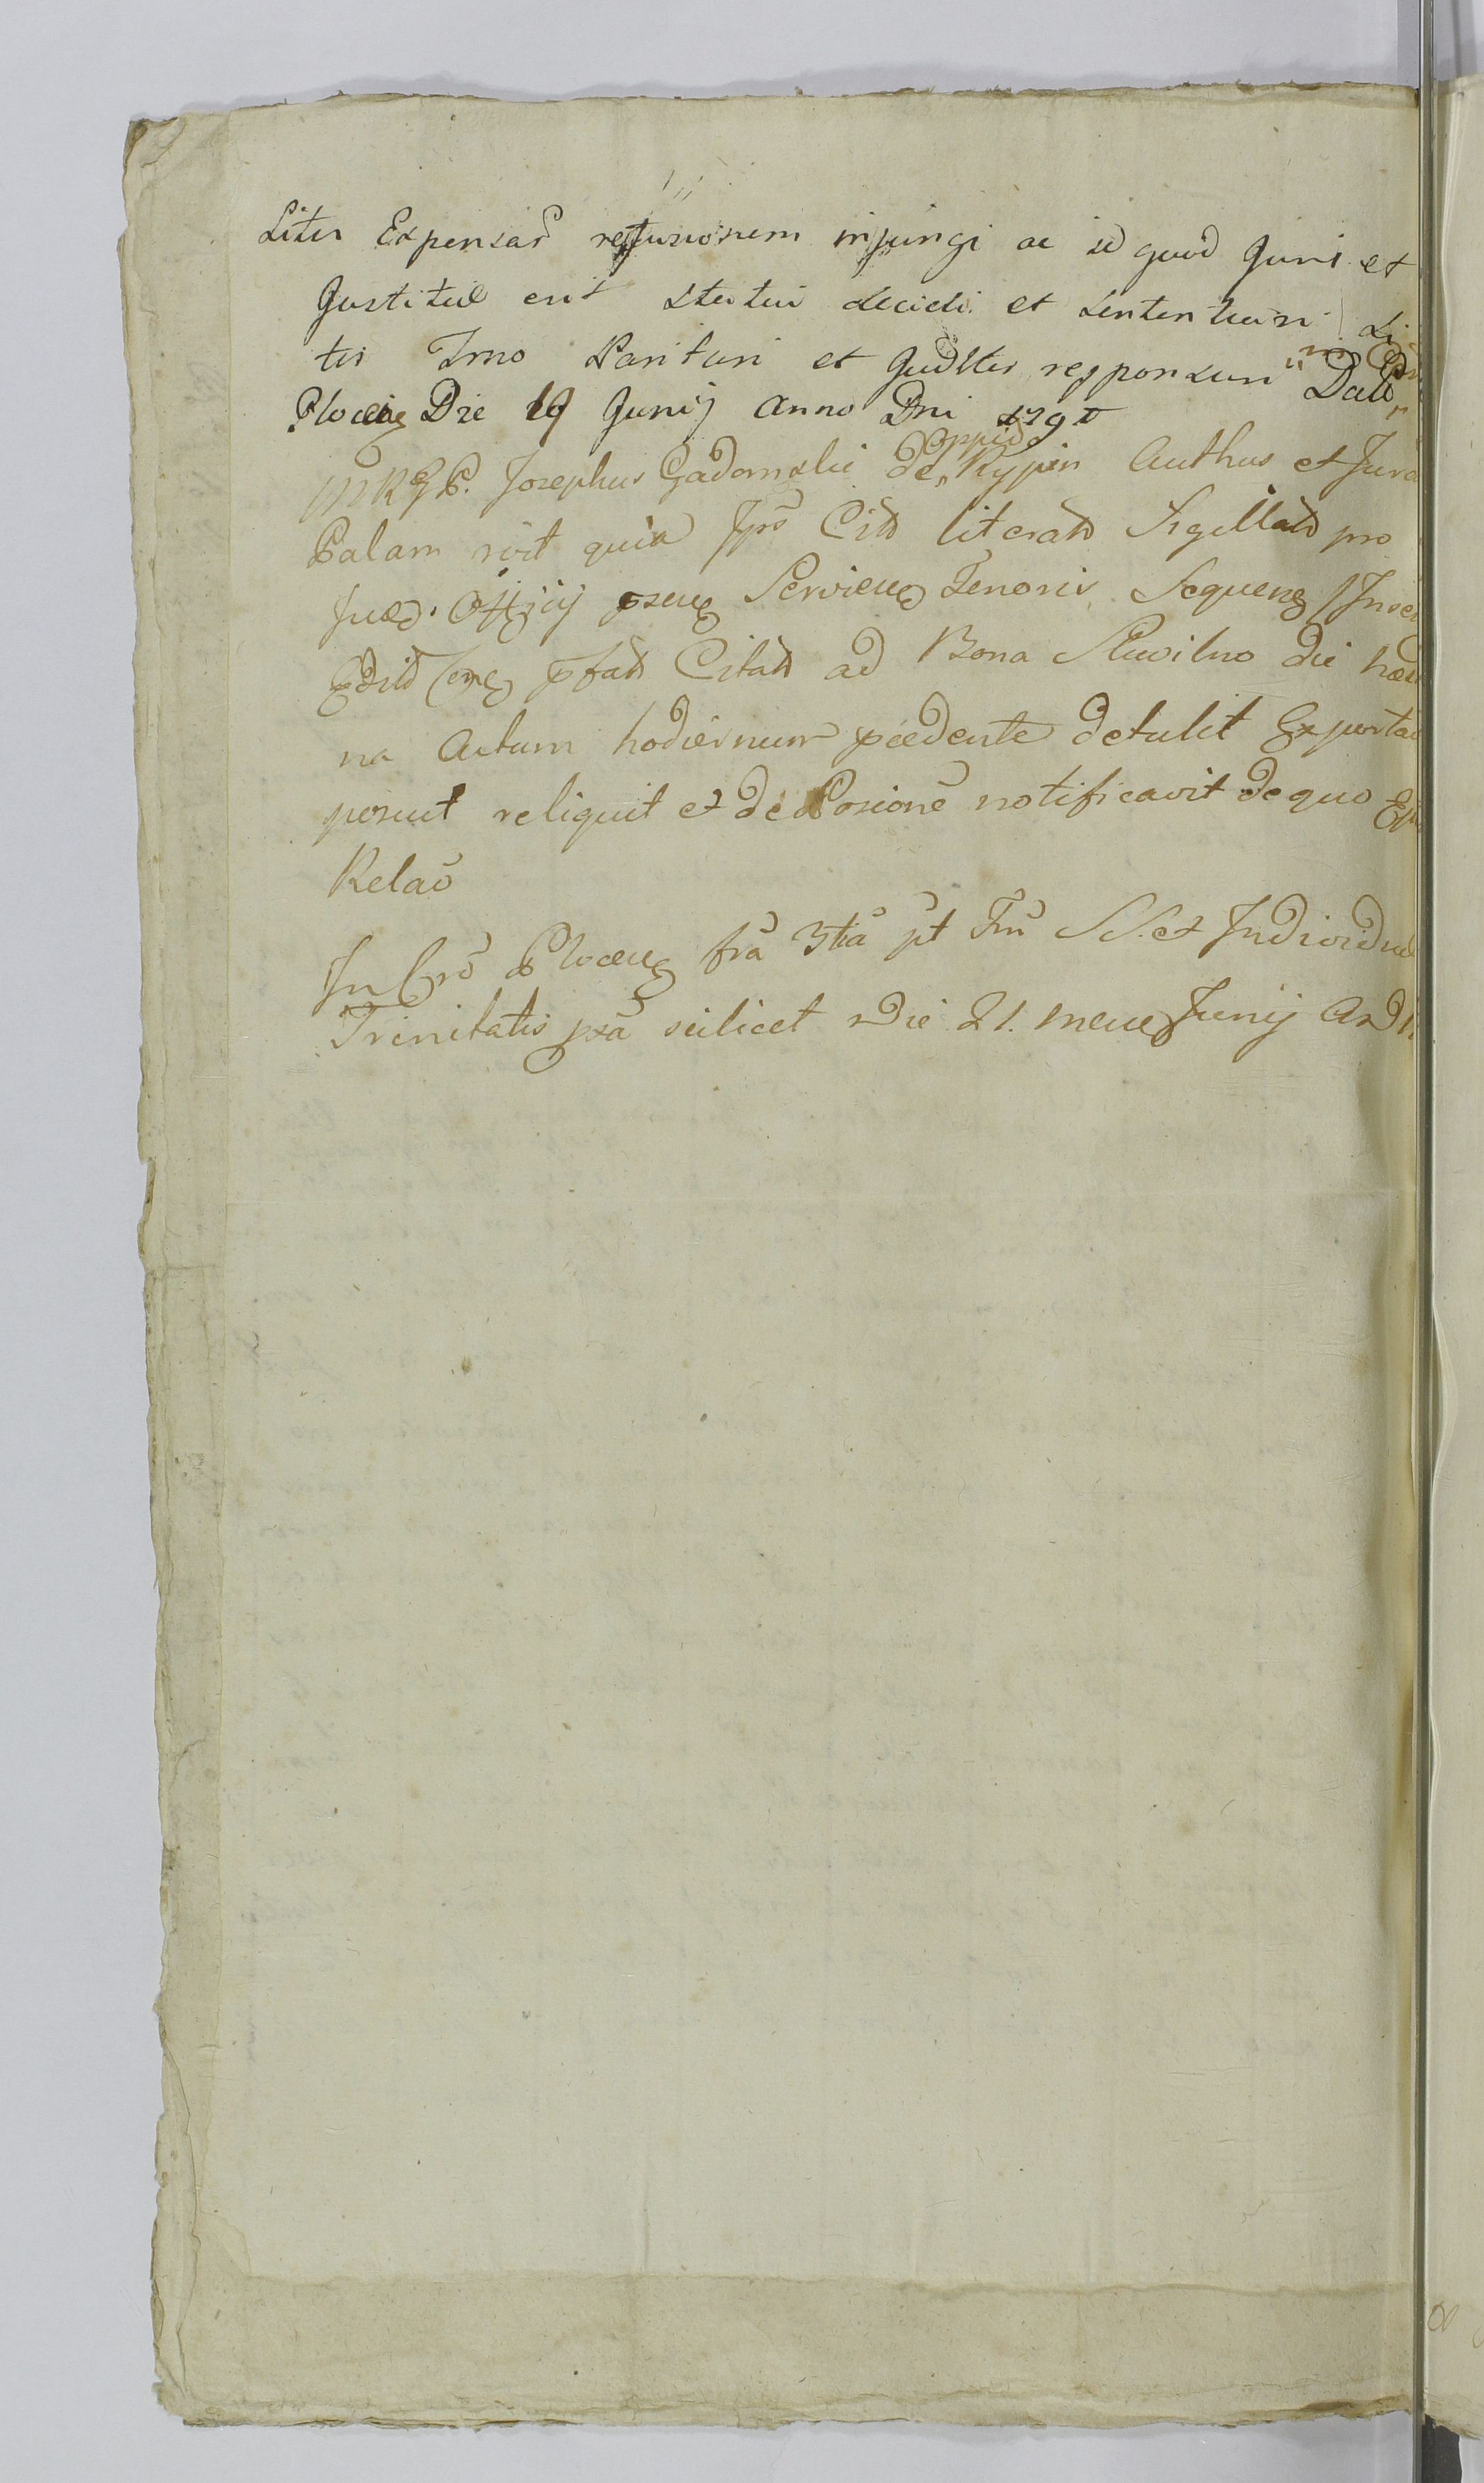 Litis Expensar refusionem injungi ac id quod Juri et
Justitiæ erit statui decidi et sententiari
tis Trno Parituri et Judltr responsuri Datt
Plocen Die 19 Junij Anno Dni 179
MRGP. Josephus Gadomski de Oppido Rypin Authus et Jura
Palam rōit quia Jps Citt literatt Sigillatt pro
Jud. Officij psen Servien Tenoris Sequens Inser
pfatt Citatt ad Bona die hes
na Actum hodiernum pcedente detulit Exporta
posuit reliquit et de Posione notificavit de quo
Relaō
In Cro Plocen fra 3tia pt Fm SS. et Individuæ
Trinitatis pxa scilicet Die 21. mens Junij